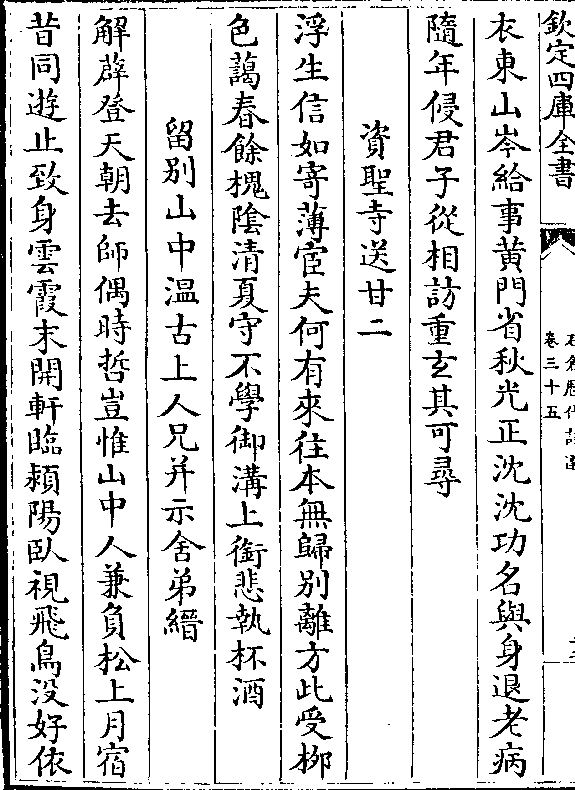 欽定四庫全書
卷三十五
衣東山岑給事黄門省秋光正沈沈功名與身退老病
隨年侵君子從相訪重玄其可尋
資聖寺送甘二
浮生信如寄薄宦夫何有來往本無歸别離方此受栁
色藹春餘槐陰清夏守不學御溝上銜悲執杯酒
留别山中温古上人兄并示舍弟縉
解薜登天朝去師偶時哲豈惟山中人兼負松上月宿
昔同遊止致身雲霞末開軒臨潁陽卧視飛鳥没好依